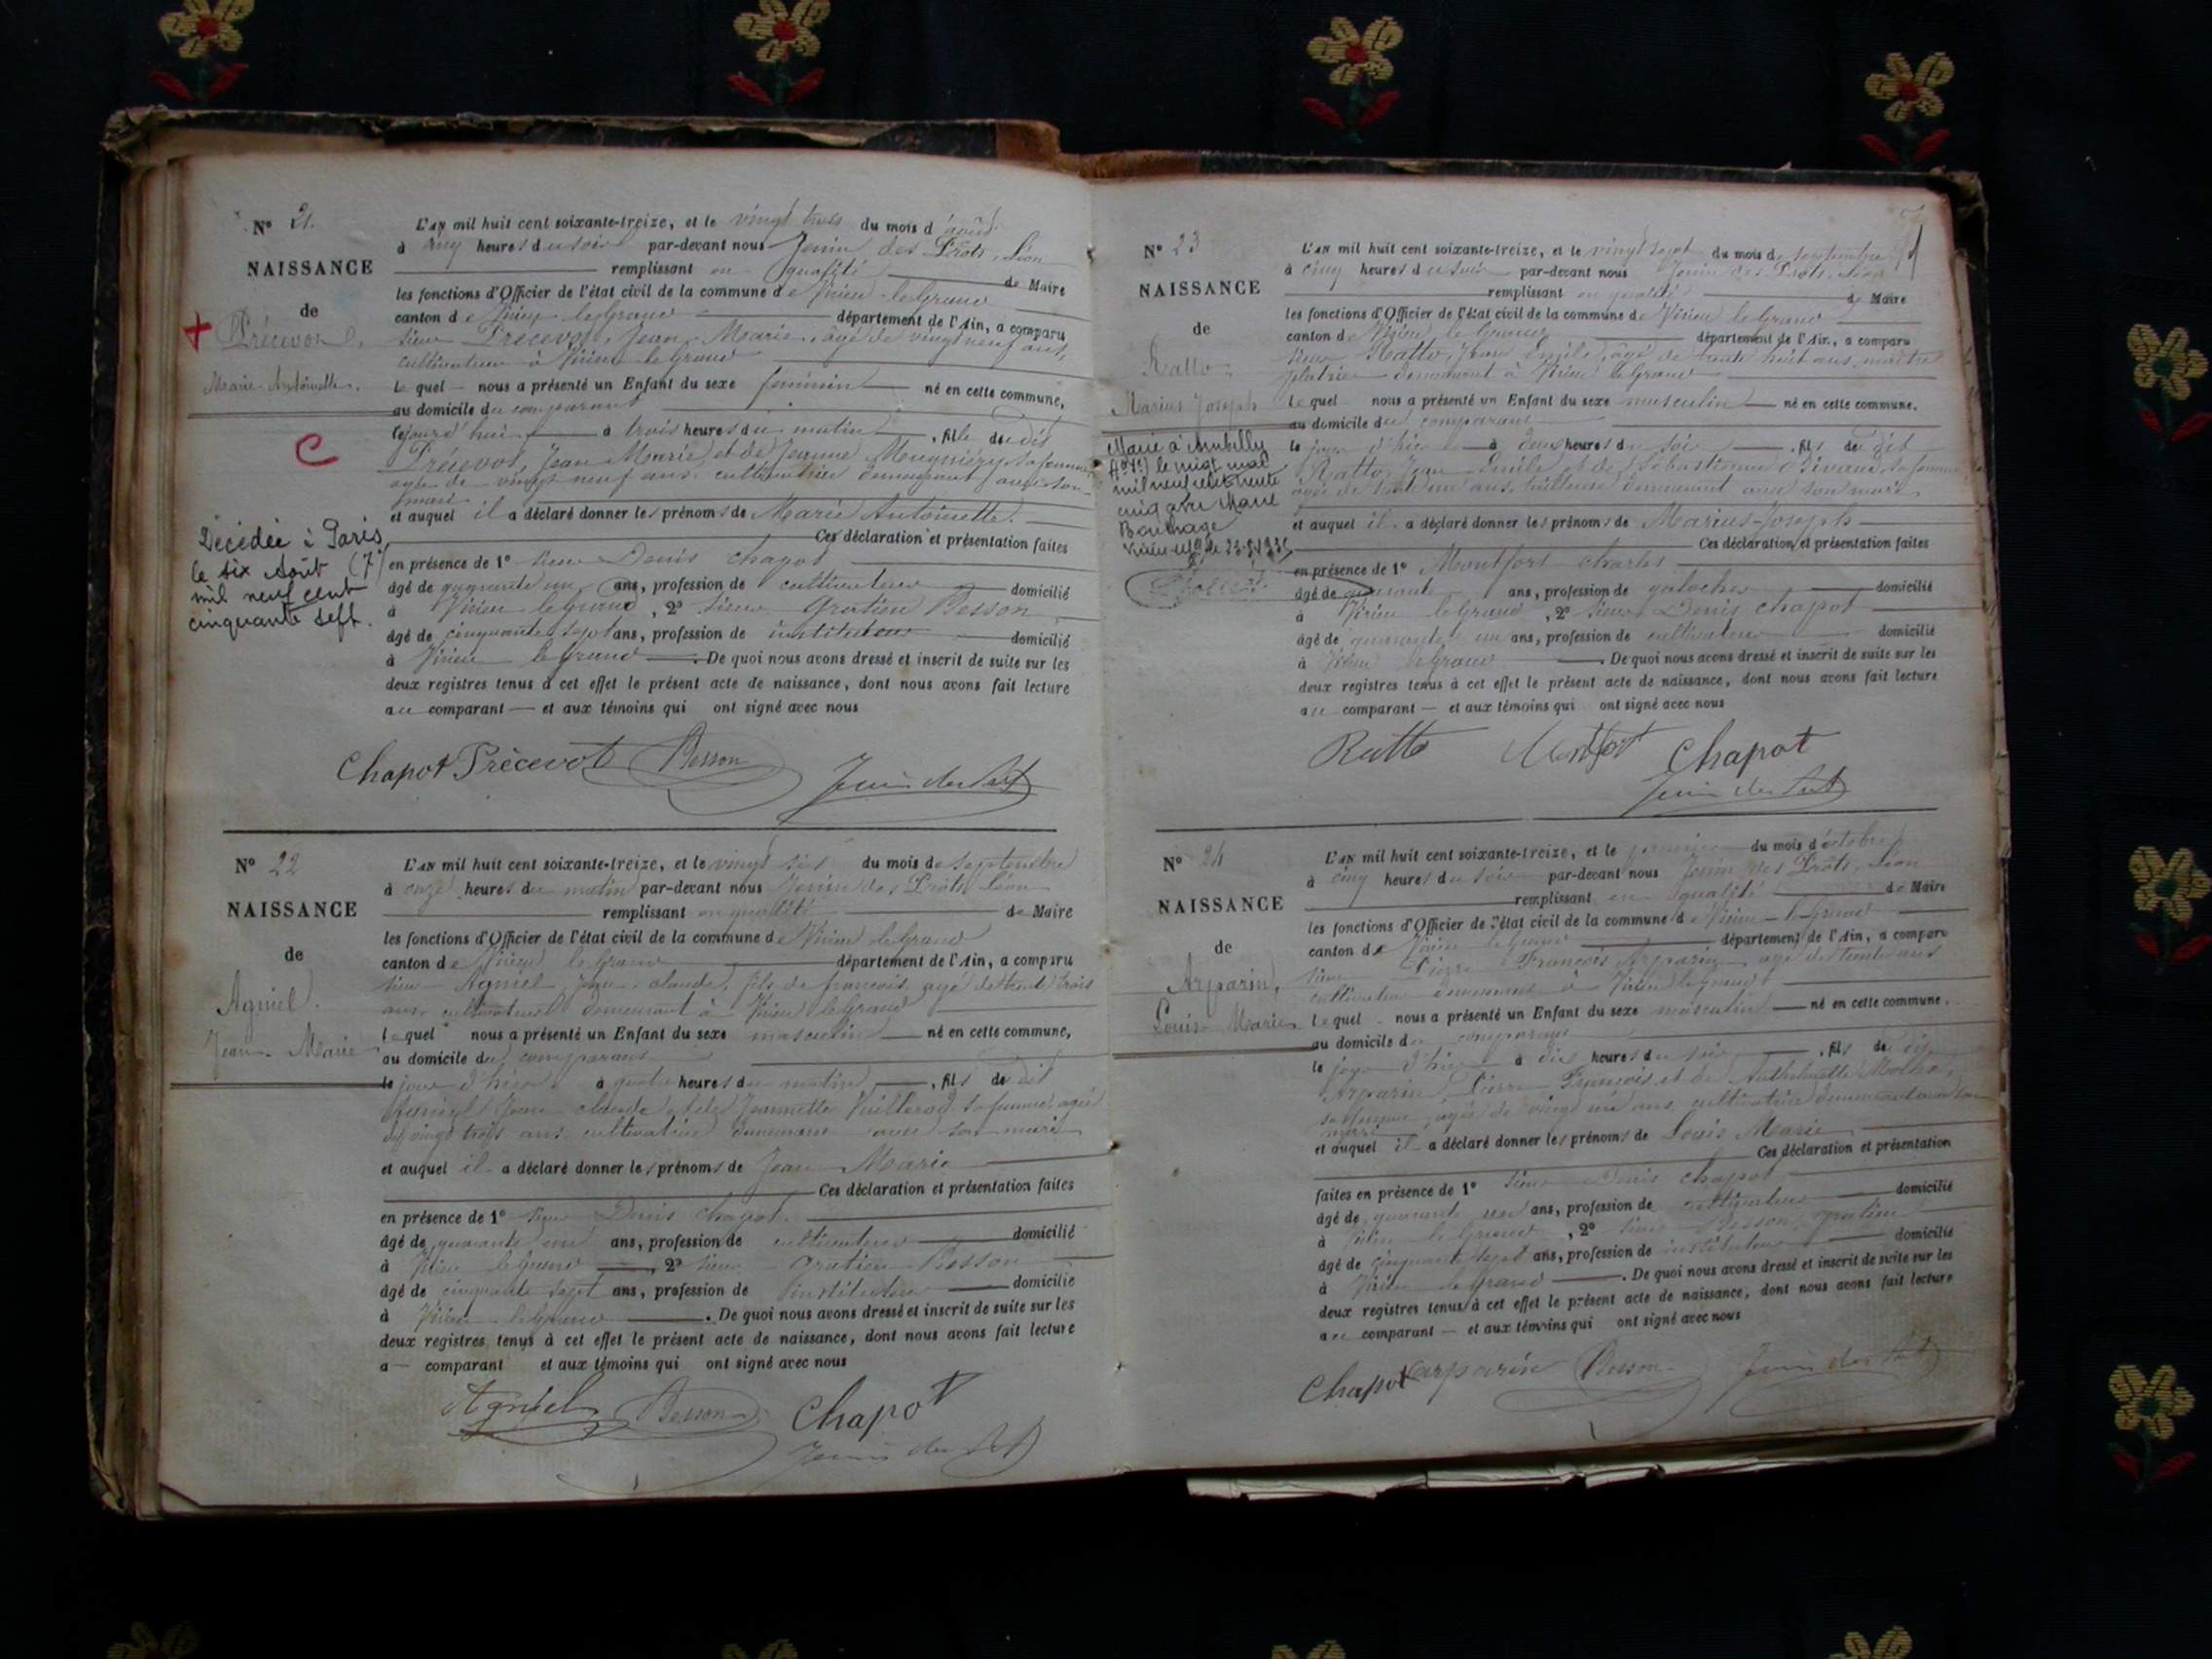 N° 21.
NAISSANCE
de
Précevot,
Marie Antoinette.
C
Décédée à Paris,
le six Août (7e)
mil neuf cent
cinquante sept.
L'AN mil huit cent soixante-treize, et le vingt trois du mois d'août
à cinq heures du soir par-devant nous Jenin des Prôts, Léon
remplissant en qualité de Maire
les fonctions d'Officier de l'état civil de la commune de Virieu-le-Grand
canton de Virieu le Grand département de l'Ain, a comparu
sieur Précevot, Jean Marie, âgé de vingt neuf ans,
cultivateur à Virieu le Grand
Lequel nous a présenté un Enfant du sexe féminin né en cette commune,
au domicile du comparant
cejourd'hui à trois heures du matin, fille du dit
Précevot, Jean Marie et de Jeanne sa femme
agée de vingt neuf ans, cultivatrice demeurant avec son
mari
et auquel il a déclaré donner les prénoms de Marie Antoinette.
Ces déclaration et présentation faites
en présence de 1° sieur Denis Chapot
âgé de quarante un ans, profession de cultivateur domicilié
à Virieu le Grand, 2° sieur Gratien Besson
âgé de cinquante sept ans, profession de instituteur domicilié
à Virieu le Grand. De quoi nous avons dressé et inscrit de suite sur les
deux registres tenus à cet effet le présent acte de naissance, dont nous avons fait lecture
au comparant — et aux témoins qui ont signé avec nous
Chapot Précevot Besson
Jenin des Prôts
N° 22
NAISSANCE
de
Agniel.
Jean-Marie
L'AN mil huit cent soixante-treize, et le vingt six du mois de septembre
à onze heures du matin par-devant nous Jenin des Prôts Léon
remplissant en qualité de Maire
les fonctions d'Officier de l'état civil de la commune de Virieu le Grand
canton de Virieu le Grand département de l'Ain, a comparu
sieur Agniel Jean-claude, fils de françois, agé de trente trois
ans, cultivateur demeurant à Virieu le Grand
Lequel nous a présenté un Enfant du sexe masculin né en cette commune,
au domicile du comparant
le jour d'hier à quatre heures du matin, fils du dit
Agniel Jean claude et de Jeannette sa femme agée
de vingt trois ans cultivatrice demeurant avec son mari
et auquel il a déclaré donner les prénoms de Jean Marie
Ces déclaration et présentation faites
en présence de 1° sieur Denis Chapot.
âgé de quarante un ans, profession de cultivateur domicilié
à Virieu le Grand, 2° sieur Gratien Besson
âgé de cinquante sept ans, profession de instituteur domicilié
à Virieu le Grand. De quoi nous avons dressé et inscrit de suite sur les
deux registres tenus à cet effet le présent acte de naissance, dont nous avons fait lecture
a — comparant et aux témoins qui ont signé avec nous
Agniel Besson Chapot
Jenin des Prôts
N° 23
NAISSANCE
de
Ratto
Marius Joseph
Marié à
le vingt mai
mil neuf cent trente
cinq avec Marie
L'AN mil huit cent soixante-treize, et le vingt sept du mois de septembre
à cinq heures du soir par-devant nous Jenin des Prôts, Léon
remplissant en qualité de Maire
les fonctions d'Officier de l'état civil de la commune de Virieu le Grand
canton de Virieu le Grand département de l'Ain, a comparu
sieur Ratto, Jean Emile, âgé de trente huit ans, maître
plâtrier demeurant à Virieu le Grand
Lequel nous a présenté un Enfant du sexe masculin né en cette commune.
au domicile du comparant
le jour d'hier à deux heures du soir, fils du dit
Ratto, Jean Emile et de Sébastienne sa femme
agée de trente un ans, tailleuse demeurant avec son mari
et auquel il a déclaré donner les prénoms de Marius-Joseph
Ces déclaration et présentation faites
en présence de 1° Montfort charles
âgé de quarante ans, profession de galocher domicilié
à Virieu le Grand, 2° sieur Denis Chapot
âgé de quarante un ans, profession de cultivateur domicilié
à Virieu le Grand. De quoi nous avons dressé et inscrit de suite sur les
deux registres tenus à cet effet le présent acte de naissance, dont nous avons fait lecture
au comparant — et aux témoins qui ont signé avec nous
Ratto Montfort Chapot
Jenin des Prôts
N° 24
NAISSANCE
de
Arparin,
Louis Marie
L'AN mil huit cent soixante-treize, et le premier du mois d'octobre
à cinq heures du soir par-devant nous Jenin des Prôts, Léon
remplissant en qualité de Maire
les fonctions d'Officier de l'état civil de la commune de Virieu-le-Grand
canton de Virieu le Grand département de l'Ain, a comparu
sieur Pierre François Arparin agé de trente ans
cultivateur demeurant à Virieu le Grand
Lequel nous a présenté un Enfant du sexe masculin né en cette commune.
au domicile du comparant
le jour d'hier à dix heures du soir, fils du dit
Arparin, Pierre François et de Anthelmette
sa femme, agée de vingt un ans, cultivatrice demeurant avec son
mari
et auquel il a déclaré donner les prénoms de Louis Marie
Ces déclaration et présentation
faites en présence de 1° sieur Denis Chapot
âgé de quarante un ans, profession de cultivateur domicilié
à Virieu le Grand, 2° sieur Besson, gratien
âgé de cinquante sept ans, profession de instituteur domicilié
à Virieu le Grand. De quoi nous avons dressé et inscrit de suite sur les
deux registres tenus à cet effet le présent acte de naissance, dont nous avons fait lecture
au comparant — et aux témoins qui ont signé avec nous
Chapot arparin Besson Jenin des Prôts